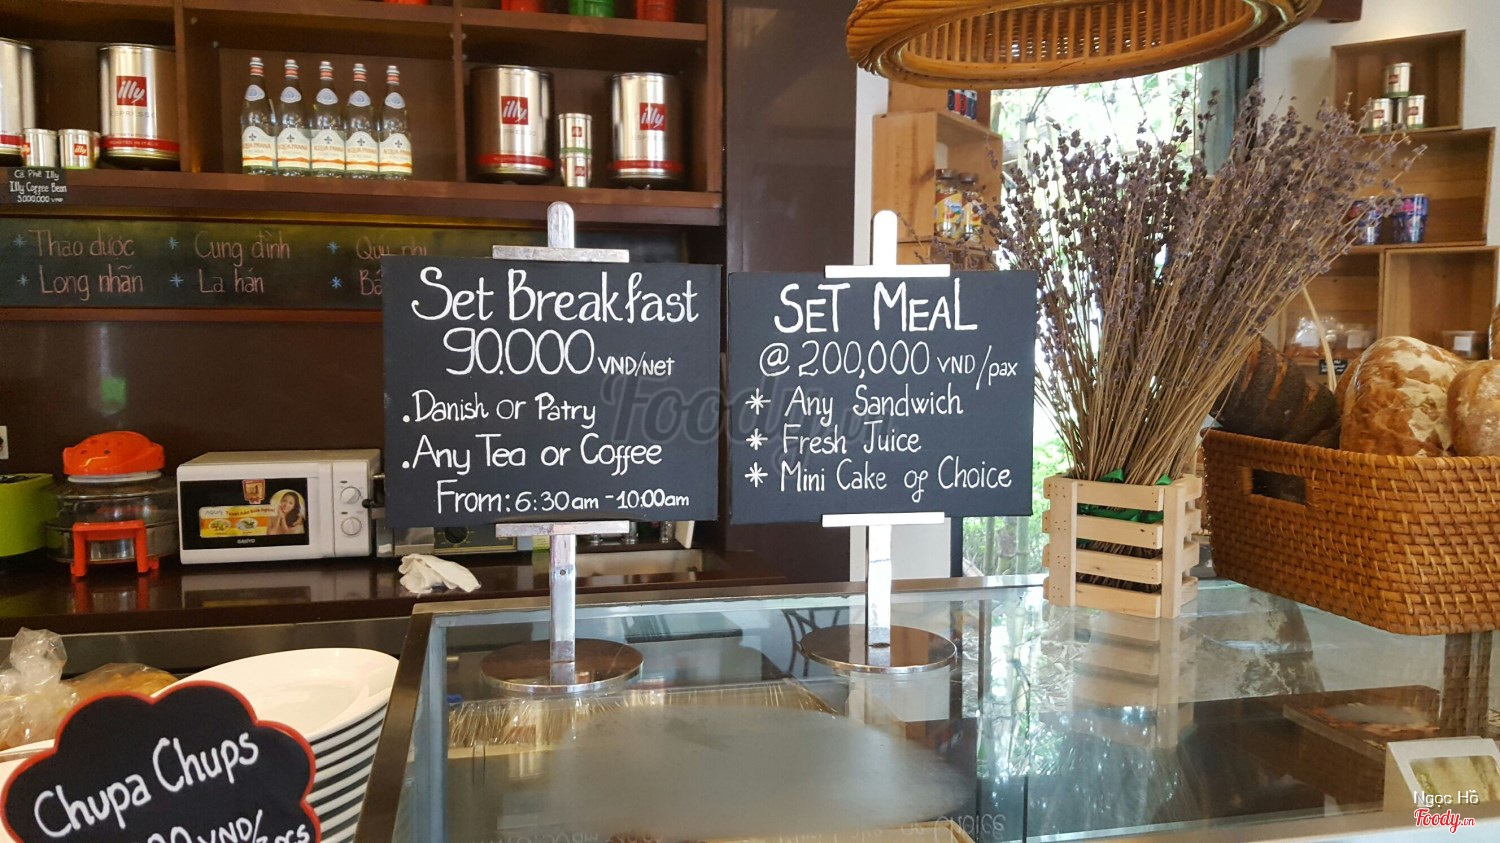 illy
illy
illy
ACQUA PANNA
Cà Phê Illy
Illy Coffee Bean
3.000.000 VNĐ
* Thảo dược * Cung đình * Quý phi
* Long nhãn * La hán *
Set Breakfast
90.000 VND/net
. Danish or Patry
. Any Tea or Coffee
From: 6:30am - 10:00am
SET MEAL
@ 200,000 VND/pax
* Any Sandwich
* Fresh Juice
* Mini Cake of Choice
Foody
SANYO
Chupa Chups
VND/
pcs
Ngọc Hồ
Foody.vn